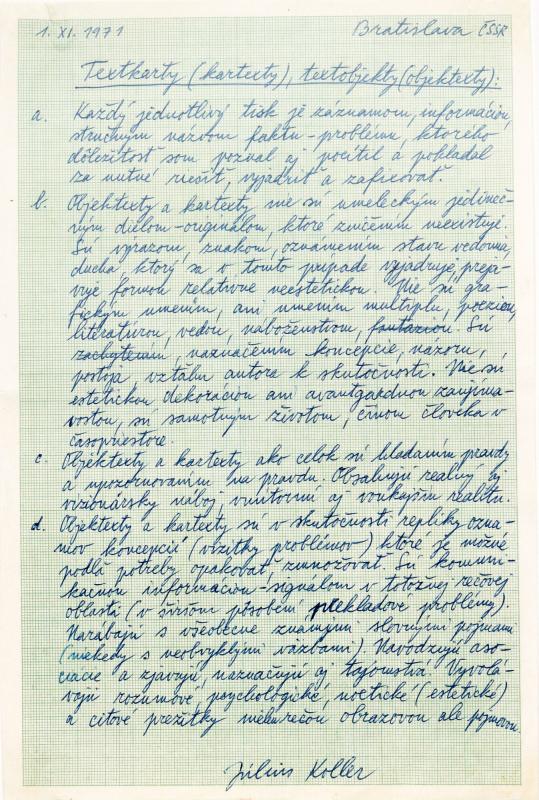 1. XI. 1971 Bratislava ČSSR
Textkarty (kartexty), textobjekty (objektexty):
a. Každý jednotlivý tisk je záznamom, informáciou,
stručným názvom faktu-problému, ktorého
dôležitosť som poznal aj pocítil a pokladal
za nutné riešiť, vyjadriť a zafixovať.
b. Objektexty a kartexty nie sú umeleckým jedineč-
ným dielom-originálom, ktoré zničením neexistuje.
Sú výrazom, znakom, oznámením stavu vedomia,
ducha, ktorý sa v tomto prípade vyjadruje, preja-
vuje formou relatívne neestetickou. Nie sú gra-
fickým umením, ani umením multiplu, poéziou,
literatúrou, vedou, náboženstvom, fantáziou. Sú
zachytením, naznačením koncepcie, názoru,
postoja, vzťahu autora k skutočnosti. Nie sú
estetickou dekoráciou ani avantgardnou zaujíma-
vosťou, sú samotným životom, činom človeka v
časopriestore.
c. Objektexty a kartexty ako celok sú hľadaním pravdy
a upozorňovaním na pravdu. Obsahujú reálny aj
vizionársky náboj, vnútornú aj vonkajšiu realitu.
d. Objektexty a kartexty sú v skutočnosti repliky ozna-
mov koncepcií (vizitky problémov) ktoré je možné
podľa potreby opakovať, zmnožovať. Sú komuni-
kačnou informáciou-signálom v totožnej rečovej
oblasti (v širšom pôsobení prekladové problémy).
Narábajú s všeobecne známymi slovnými pojmami
(niekedy s neobvyklými väzbami). Navodzujú aso-
ciácie a zjavujú, naznačujú aj tajomstvá. Vyvolá-
vajú rozumové, psychologické, noetické (estetické)
a citové prežitky nie rečou obrazovou ale pojmovou.
Július Koller